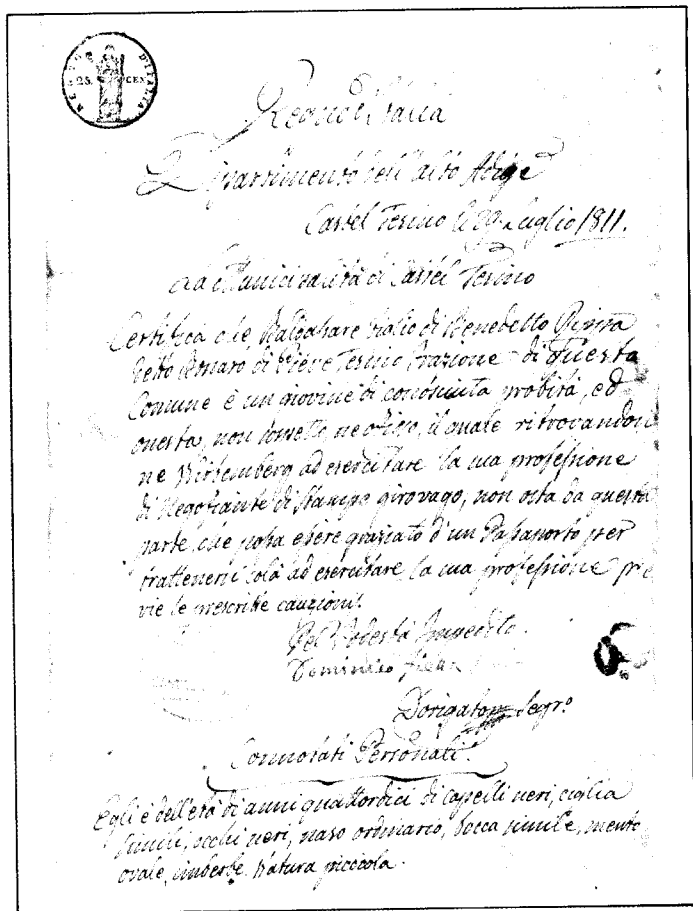 REGNO D'ITALIA
25. CENT.
Regno d'Italia
Dipartimento dell'alto Adige
Castel Tesino li 29 Luglio 1811.
La Municipalità di Castel Tesino
Certifica che Baldassare figlio di Benedetto
detto di Pieve Tesino frazione di Questa
Comune è un giovine di conosciuta probità, ed
onesta, non sospetto, ne ozioso, il quale ritrovandosi
ne Wirtemberg ad esercitare la sua professione
di Negoziante di Stampe girovago, non osta da questa
parte che possa essere graziato d'un Passaporto per
trattenersi colà ad esercitare la sua professione pre
vie le prescritte cauzioni.
Pel Podestà Impedito
Dominico
Dorigaton Segr.o
Connotati Personali.
Egli è dell'età di anni quattordici di capelli neri, ciglia
simili, occhi neri, naso ordinario, bocca simile, mento
ovale, imberbe. Statura piccola.